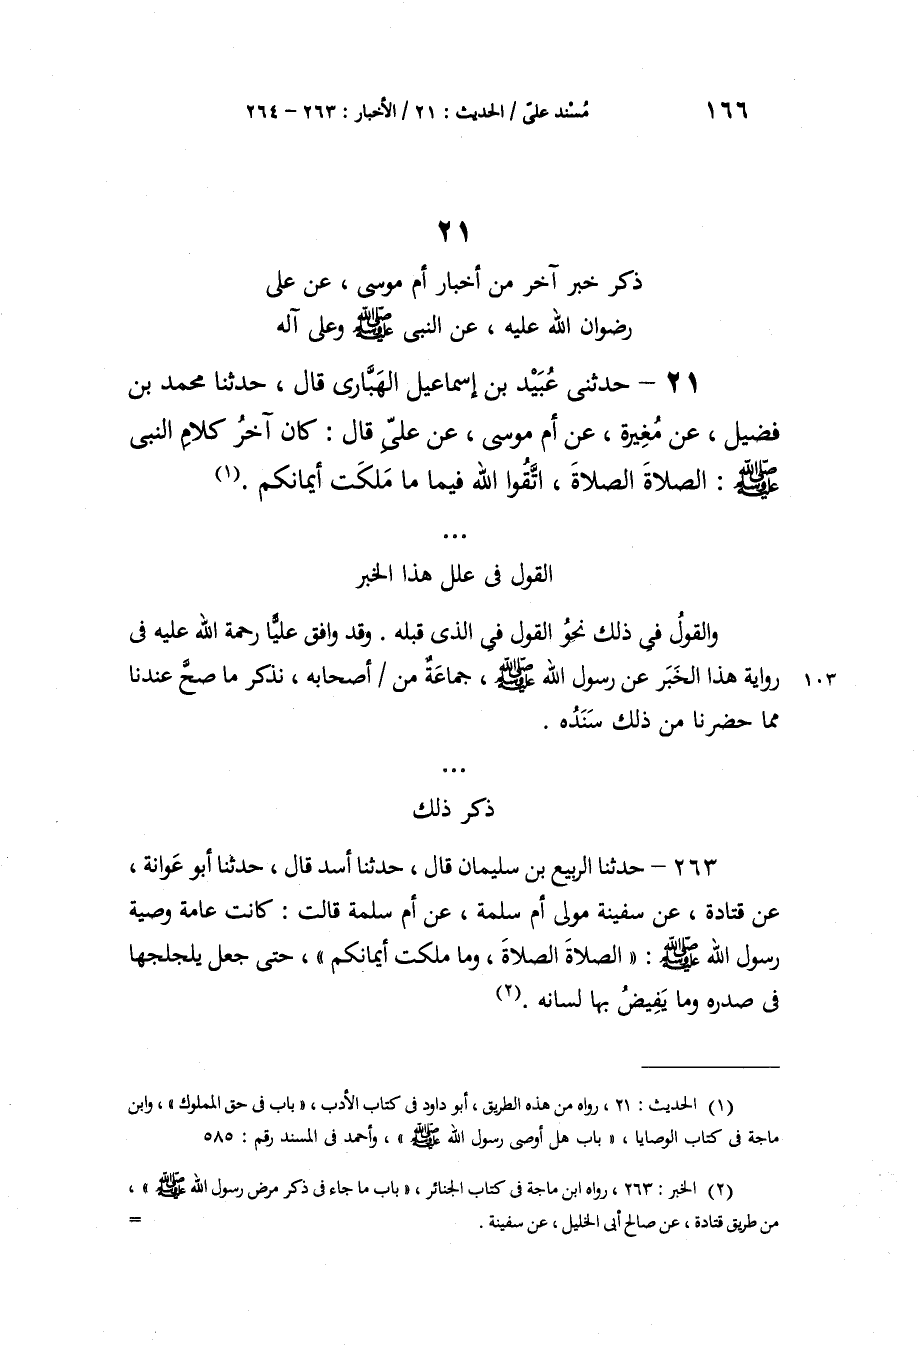 ١٦٦ مُسْند علىّ / الحديث : ٢١ / الأخبار : ٢٦٣ – ٢٦٤
٢١
ذكر خبر آخر من أخبار أم موسى ، عن على
رضوان الله عليه ، عن النبى ﷺ وعلى آله
٢١ – حدثنى عُبَيْد بن إسماعيل الهَبَّارى قال ، حدثنا محمد بن
فضيل ، عن مُغِيرة ، عن أم موسى ، عن علىِّ قال : كان آخرُ كلامِ النبى
ﷺ : الصلاةَ الصلاةَ ، اتَّقُوا الله فيما ما مَلكَت أيمانكم .(١)
...
القول فى علل هذا الخبر
والقولُ فى ذلك نحوُ القول فى الذى قبله . وقد وافق عليًّا رحمة الله عليه فى
رواية هذا الخَبَر عن رسول الله ﷺ ، جماعَةٌ من / أصحابه ، نذكر ما صحَّ عندنا ١٠٣
مما حضرنا من ذلك سَنَدُه .
...
ذكر ذلك
٢٦٣ – حدثنا الربيع بن سليمان قال ، حدثنا أسد قال ، حدثنا أبو عَوانة ،
عن قتادة ، عن سفينة مولى أم سلمة ، عن أم سلمة قالت : كانت عامة وصية
رسول الله ﷺ : « الصلاةَ الصلاةَ ، وما ملكت أيمانكم » ، حتى جعل يلجلجها
فى صدره وما يَفِيضُ بها لسانه .(٢)
(١) الحديث : ٢١ ، رواه من هذه الطريق ، أبو داود فى كتاب الأدب ، « باب فى حق المملوك » ، وابن
ماجة فى كتاب الوصايا ، « باب هل أوصى رسول الله ﷺ » ، وأحمد فى المسند رقم : ٥٨٥
(٢) الخبر : ٢٦٣ ، رواه ابن ماجة فى كتاب الجنائر ، « باب ما جاء فى ذكر مرض رسول الله ﷺ » ،
من طريق قتادة ، عن صالح أبى الخليل ، عن سفينة . =